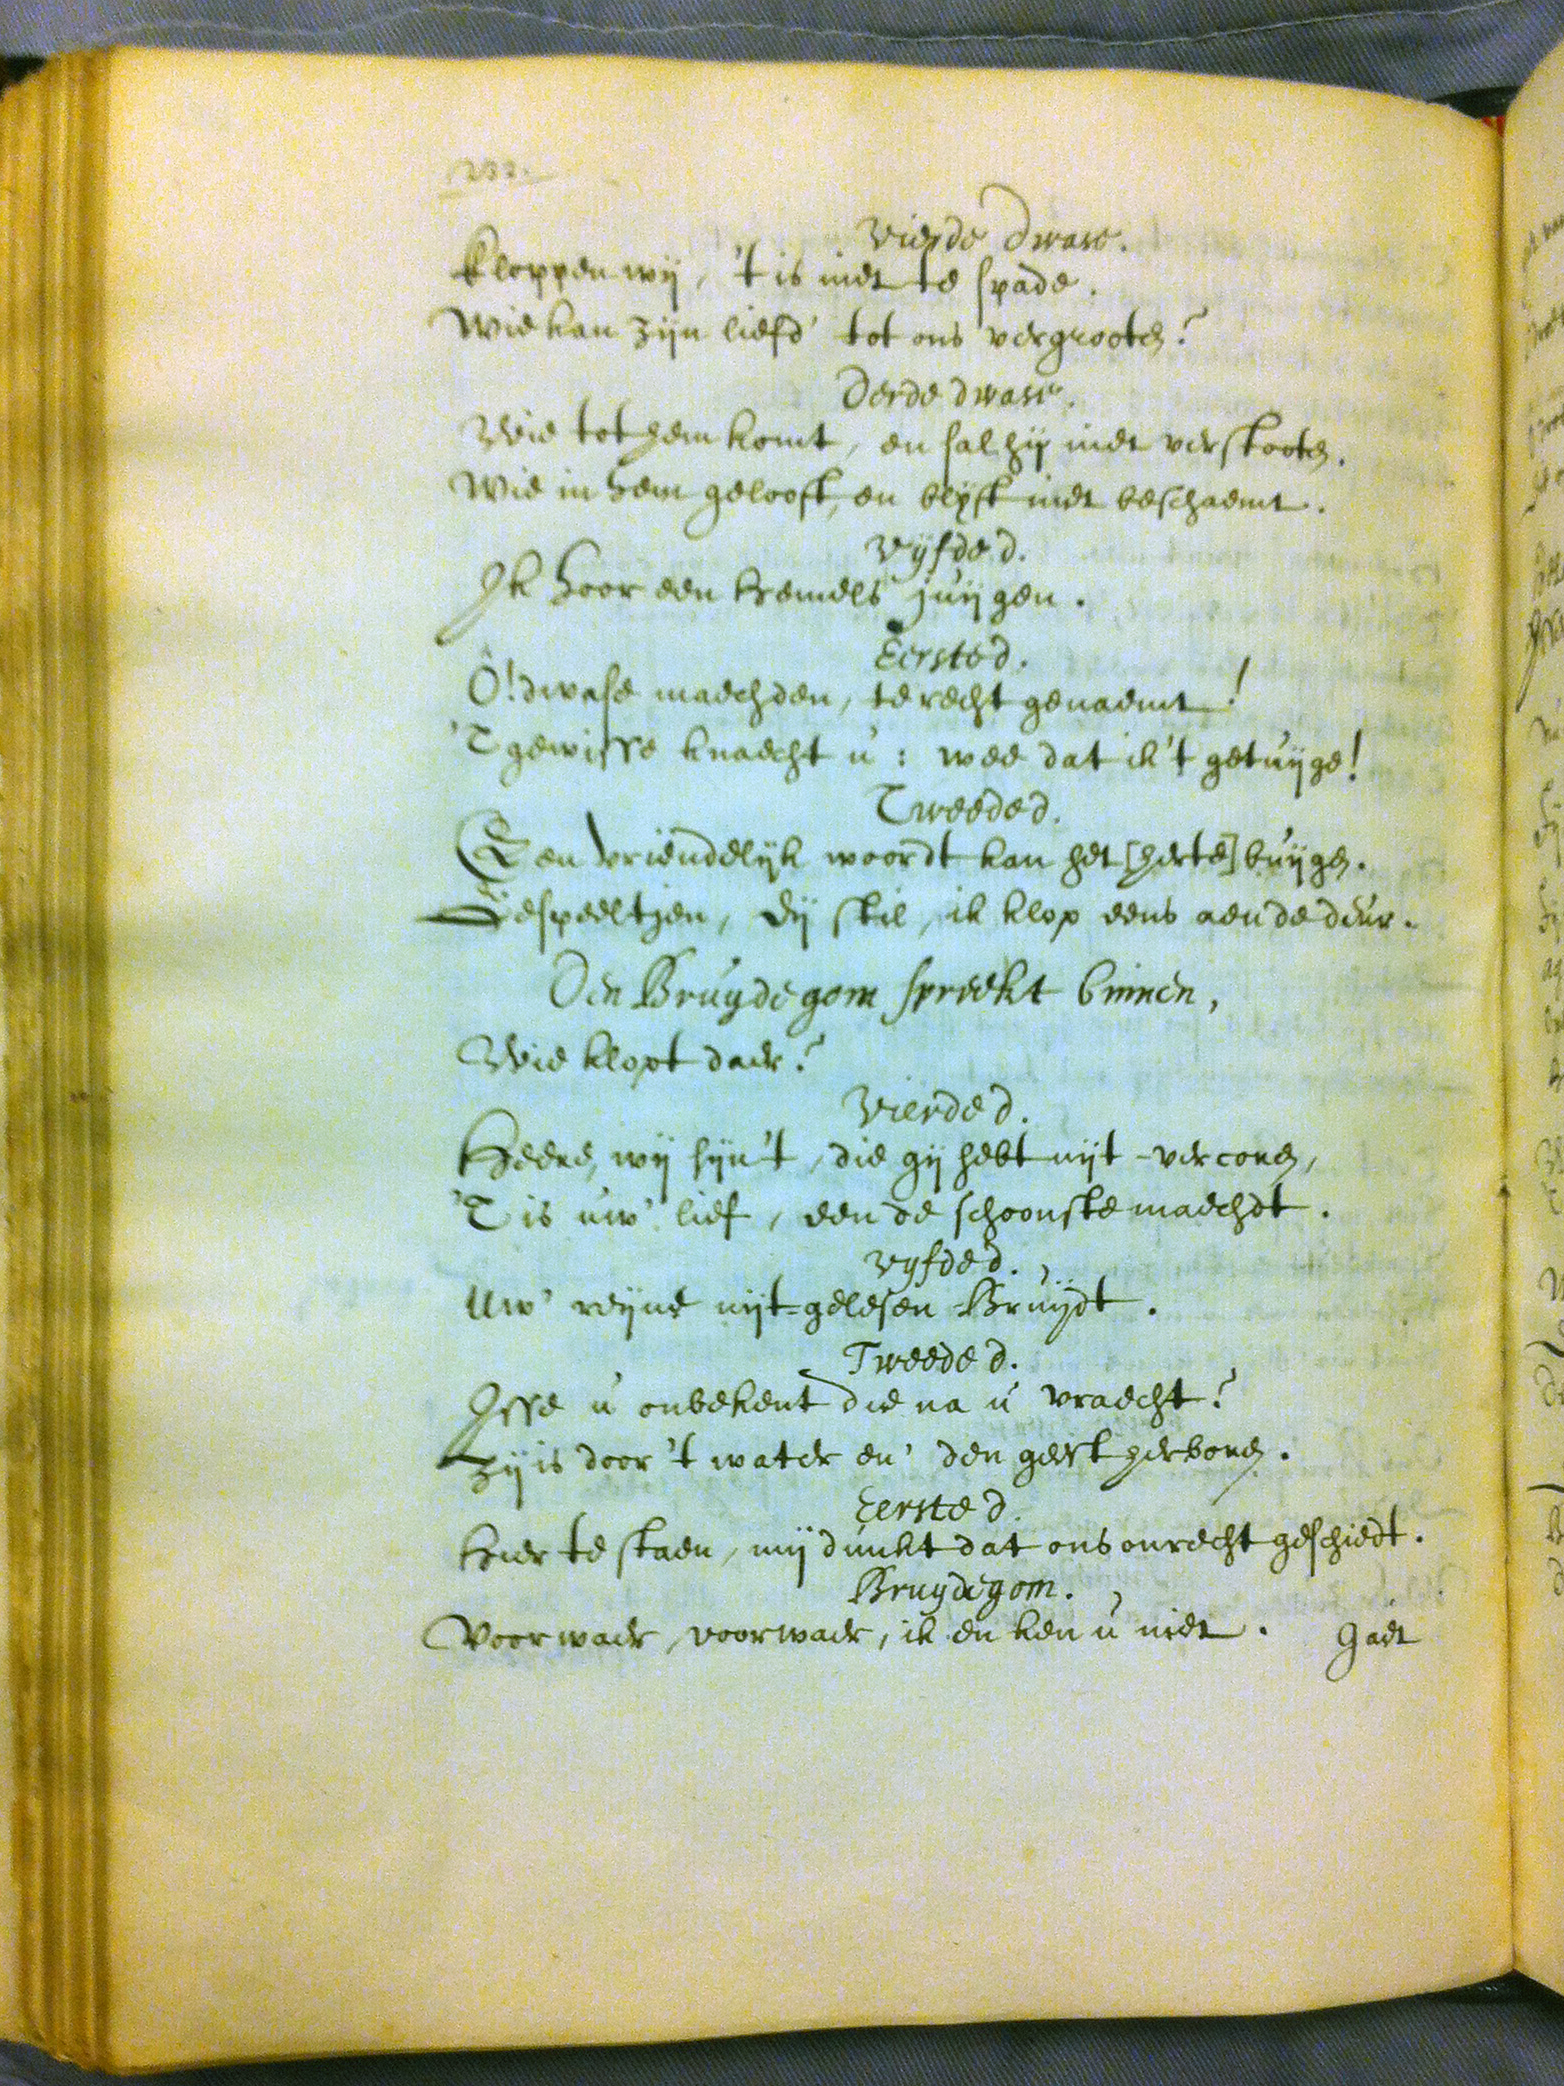 232.
Vierde Dwase.
Kloppen wij, 't is niet te spade.
Wie kan zijn liefd' tot ons vergrooten?
Derde dwase.
Wie tot hem komt, en sal hij niet verstooten.
Wie in hem gelooft, en blijft niet beschaemt.
Vijfde d.
Ik hoor een hemels juijgen.
Eerste d.
O! dwase maechden, te recht genaemt!
'T gewisse knaecht u: wee dat ik 't getuijge!
Tweede d.
Een vriendelijk woordt kan het [herte] buijgen.
Gespeeltjen, sij stil, ik klop eens aen de deur.
Den Bruydegom spreekt binnen,
Wie klopt daer?
Vierde d.
Heere, wij sijn 't, die gij hebt uijt-vercoren,
'T is uw' lief, een de schoonste maechdt.
Vyfde d.
Uw' reijne uijt-gelesen Bruijdt.
Tweede d.
Isse u onbekent die na u vraecht?
Zij is door 't water en' den geest herboren.
Eerste d.
Hier te staen, mij dunkt dat ons onrecht geschiedt.
Bruydegom.
Voorwaer, voorwaer, ik en ken u niet.
Gaet